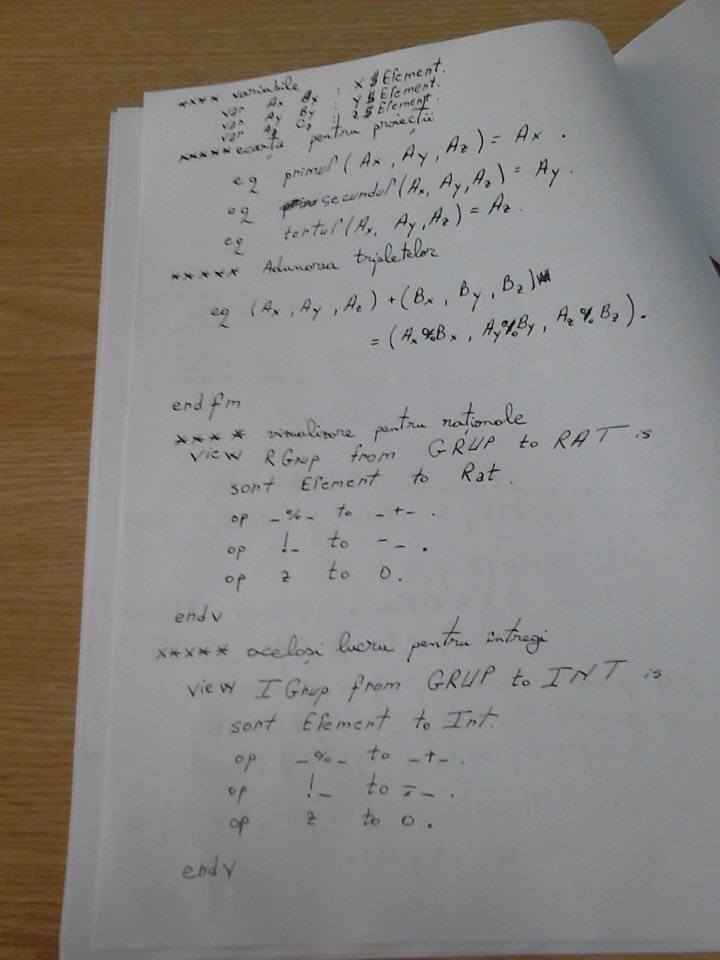 **** variabile
var Ax Bx : X$Element.
var Ay By : Y$Element.
var Az Bz : Z$Element.
***** ecuații pentru proiecții
eq primul(Ax, Ay, Az) = Ax .
eq secundul(Ax, Ay, Az) = Ay.
eq tertul(Ax, Ay, Az) = Az.
***** Adunarea tripletelor
eq (Ax, Ay, Az) + (Bx, By, Bz)
= (Ax%Bx, Ay%By, Az%Bz).
endfm
**** vizualizare pentru raționale
view RGrup from GRUP to RAT is
sort Element to Rat.
op _%_ to _+_ .
op !_ to -_ .
op z to 0.
endv
***** același lucru pentru întregi
view IGrup from GRUP to INT is
sort Element to Int.
op _%_ to _+_ .
op !_ to -_ .
op z to 0.
endv